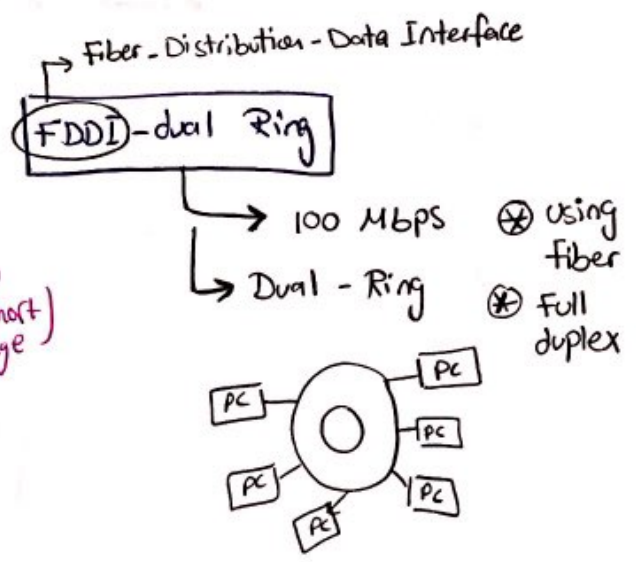 Fiber-Distribution-Data Interface
FDDI-dual Ring
100 Mbps
Dual-Ring
⊛ using
fiber
⊛ Full
duplex
PC
PC
PC
PC
PC
PC